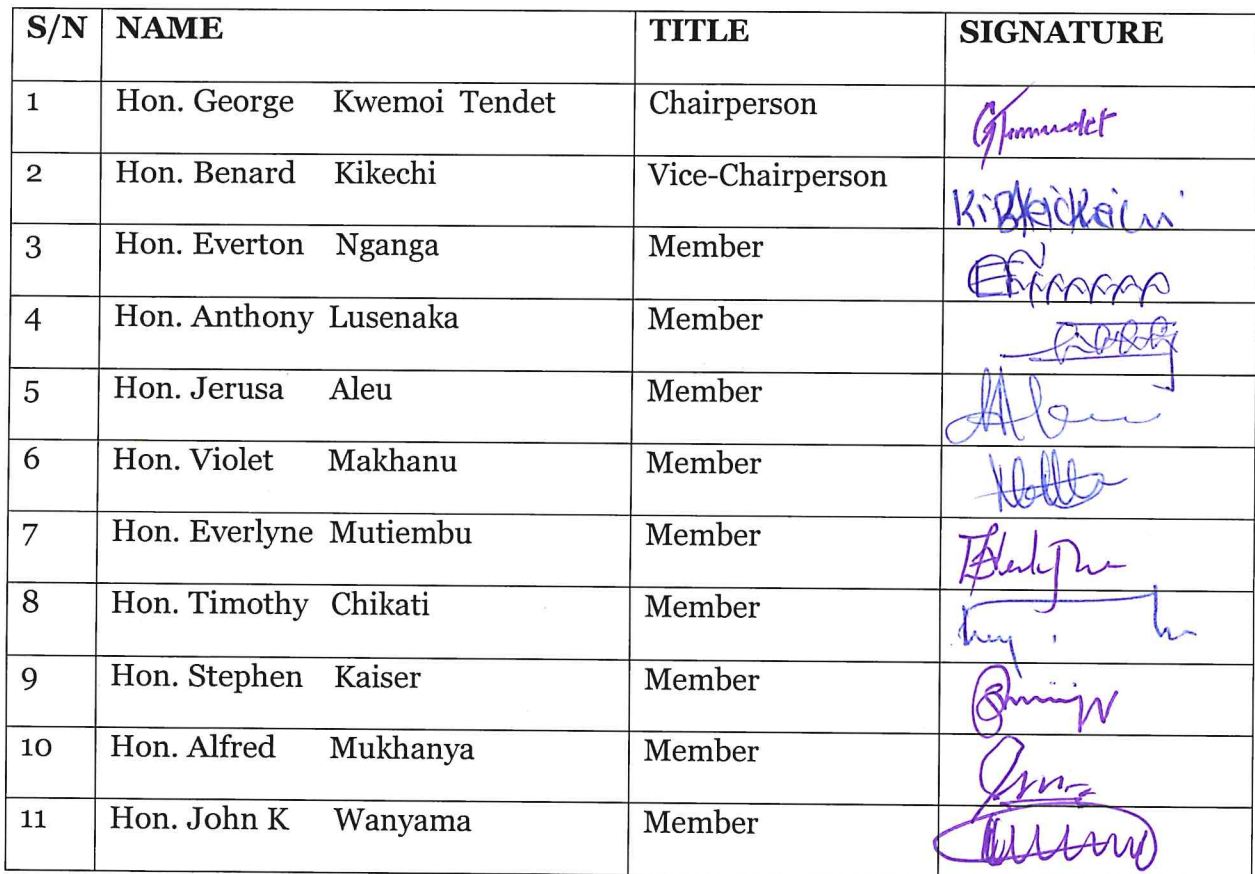 S/N NAME TITLE SIGNATURE
1 Hon. George Kwemoi Tendet Chairperson
2 Hon. Benard Kikechi Vice-Chairperson
3 Hon. Everton Nganga Member
4 Hon. Anthony Lusenaka Member
5 Hon. Jerusa Aleu Member
6 Hon. Violet Makhanu Member
7 Hon. Everlyne Mutiembu Member
8 Hon. Timothy Chikati Member
9 Hon. Stephen Kaiser Member
10 Hon. Alfred Mukhanya Member
11 Hon. John K Wanyama Member